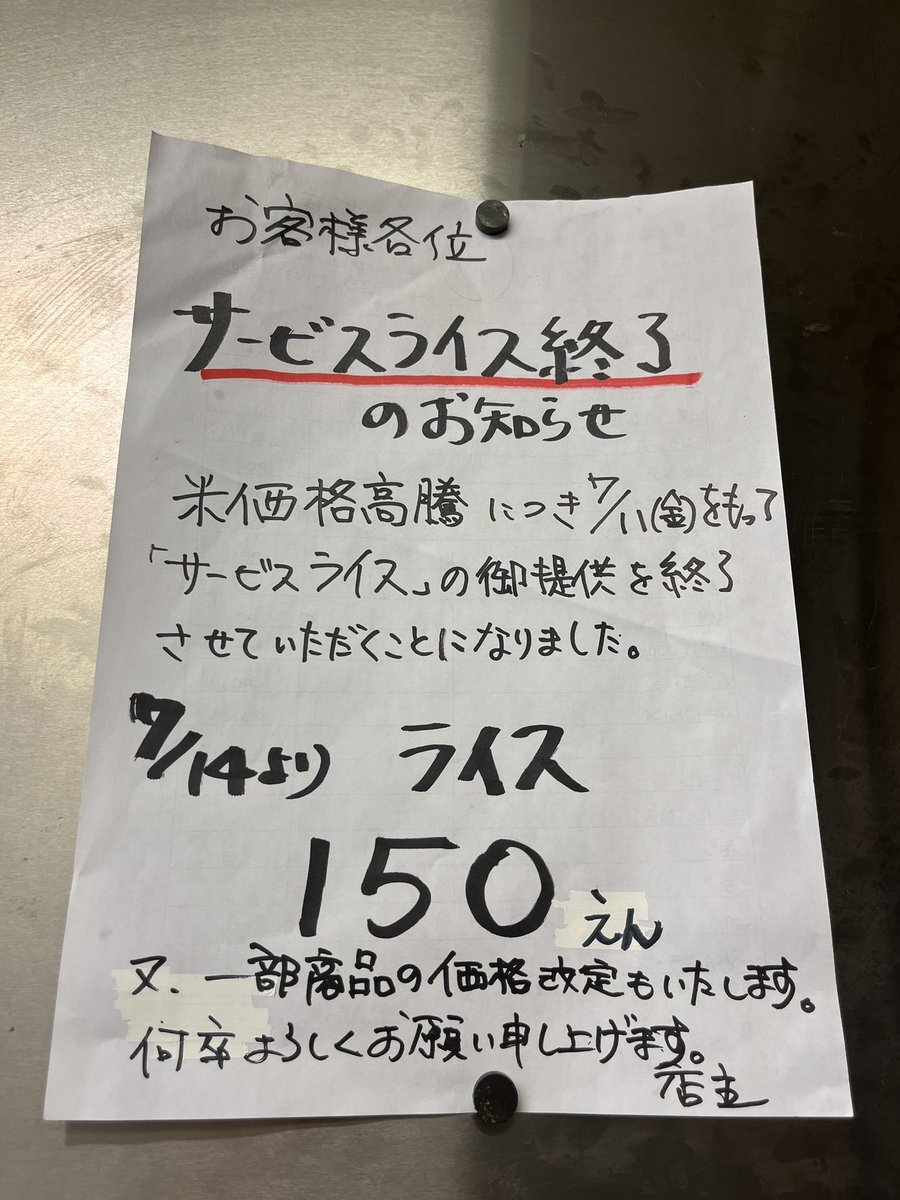 お客様各位
サービスライス終了
のお知らせ
米価格高騰につき7/11(金)をもって
「サービスライス」の御提供を終了
させていただくことになりました。
7/14より ライス
150えん
又、一部商品の価格改定もいたします。
何卒よろしくお願い申し上げます。
店主